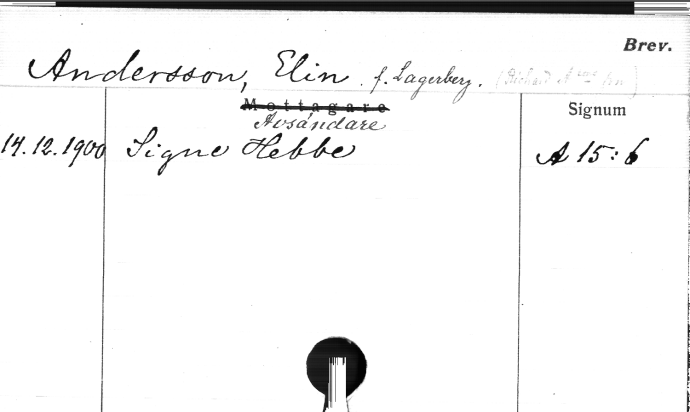 Brev.
Andersson, Elin f. Lagerberg. (Richard A
Mottagare
Signum
Avsändare
14.12.1900 Signe Hebbe A 15:6